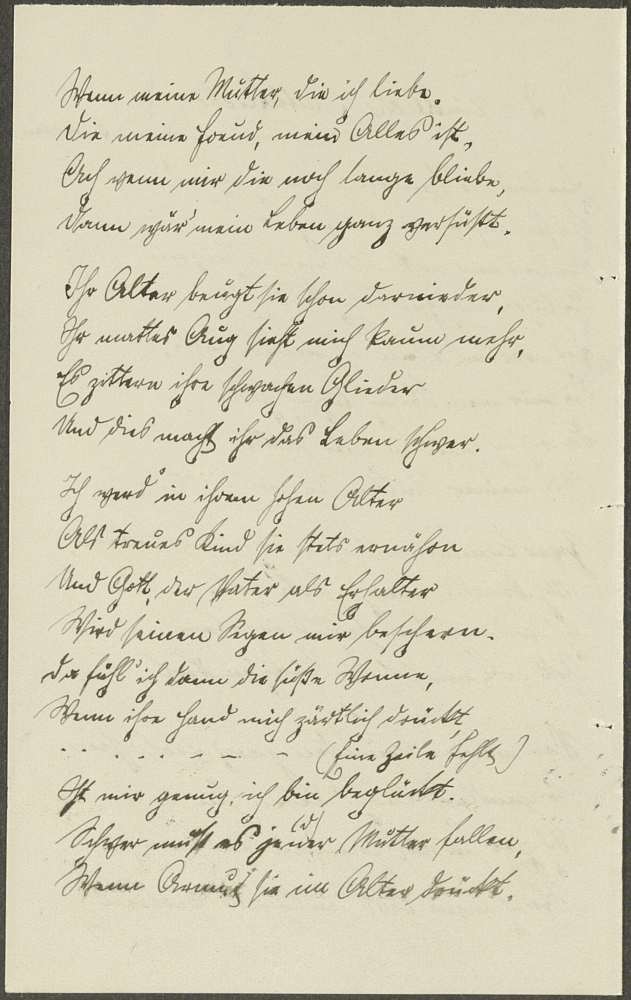 Wenn meine Mutter, die ich liebe.
Die meine Freud, mein Alles ist,
Ach wenn mir die noch lange bliebe,
Dann wär' mein Leben ganz versüßt.
Ihr Alter beugt sie schon darnieder,
Ihr mattes Aug sieht mich kaum mehr,
Es zittern ihre schwachen Glieder
Und dies macht ihr das Leben schwer.
Ich werd' in ihrem hohen Alter
Als treues Kind sie stets ernähren
Und Gott, der Vater als Erhalter
Wird seinen Segen mir beschern.
Da fühl' ich dann die süße Wonne,
Wenn ihre Hand mich zärtlich drückt,
. . . . - - - - (Eine Zeile fehlt)
Ist mir genug, ich bin beglückt.
Schwer muß es je(d)er Mutter fallen,
Wenn Armut sie im Alter drückt.